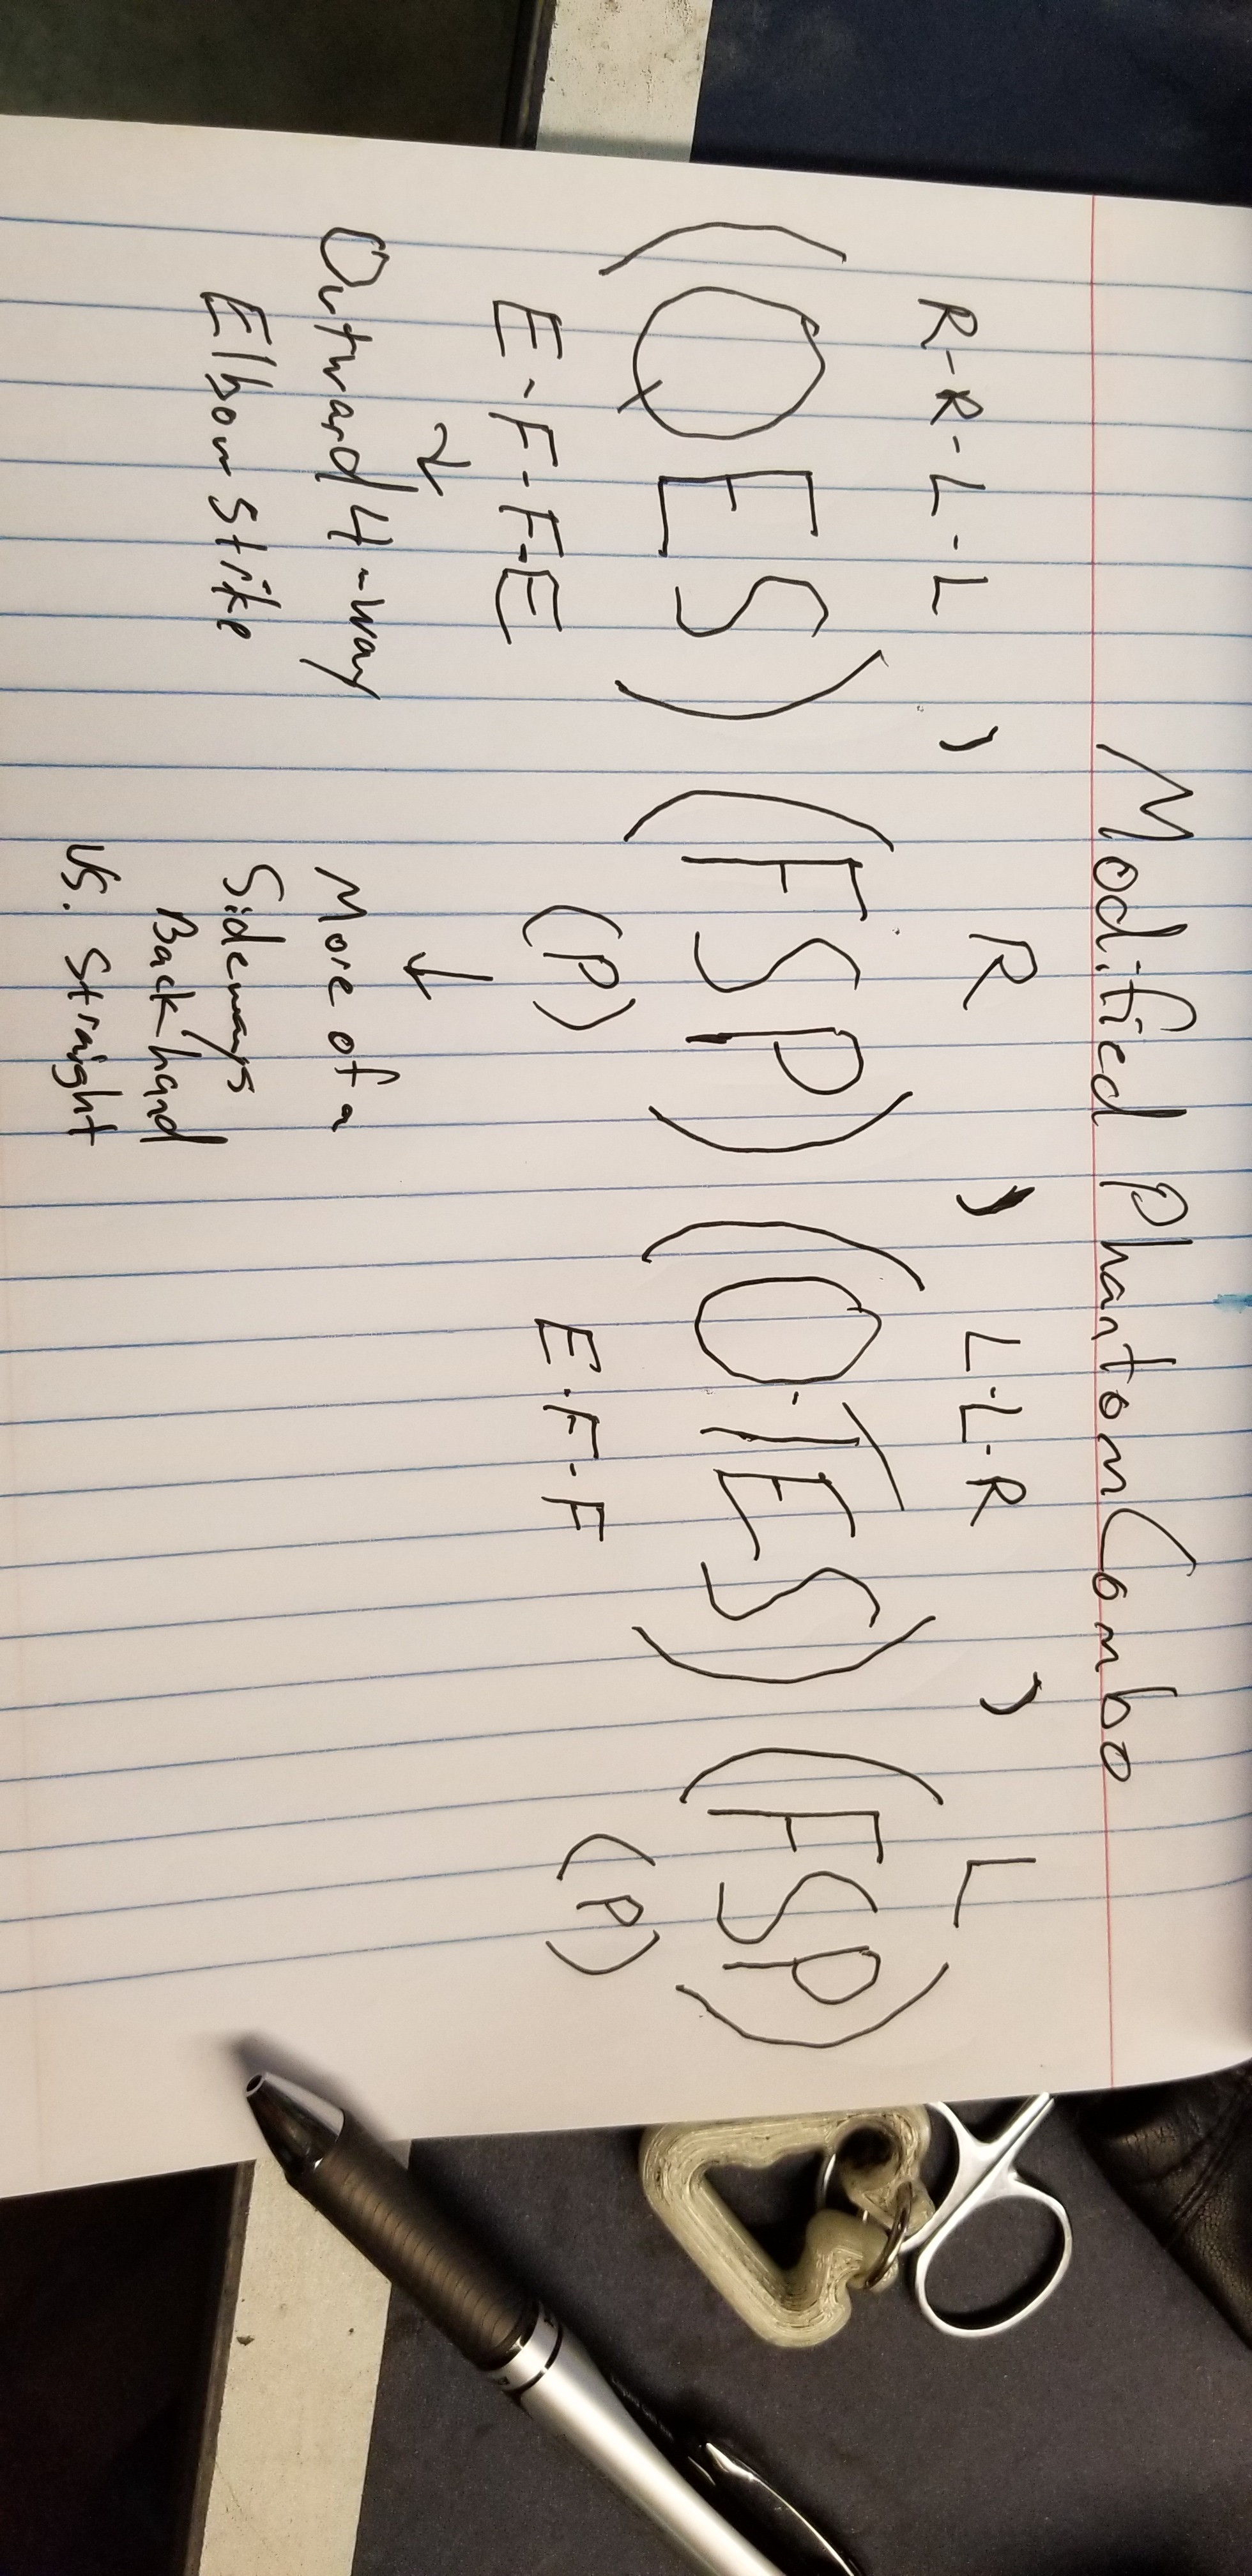 Modified Phantom Combo
R-R-L-L , R , L-L-R , L
(OES) (FSP) (O-TES) (FSP)
E-F-F-E (P) E-F-F (P)
Outward 4-way
Elbow Strike
More of a
Sideways
Backhand
vs. Straight